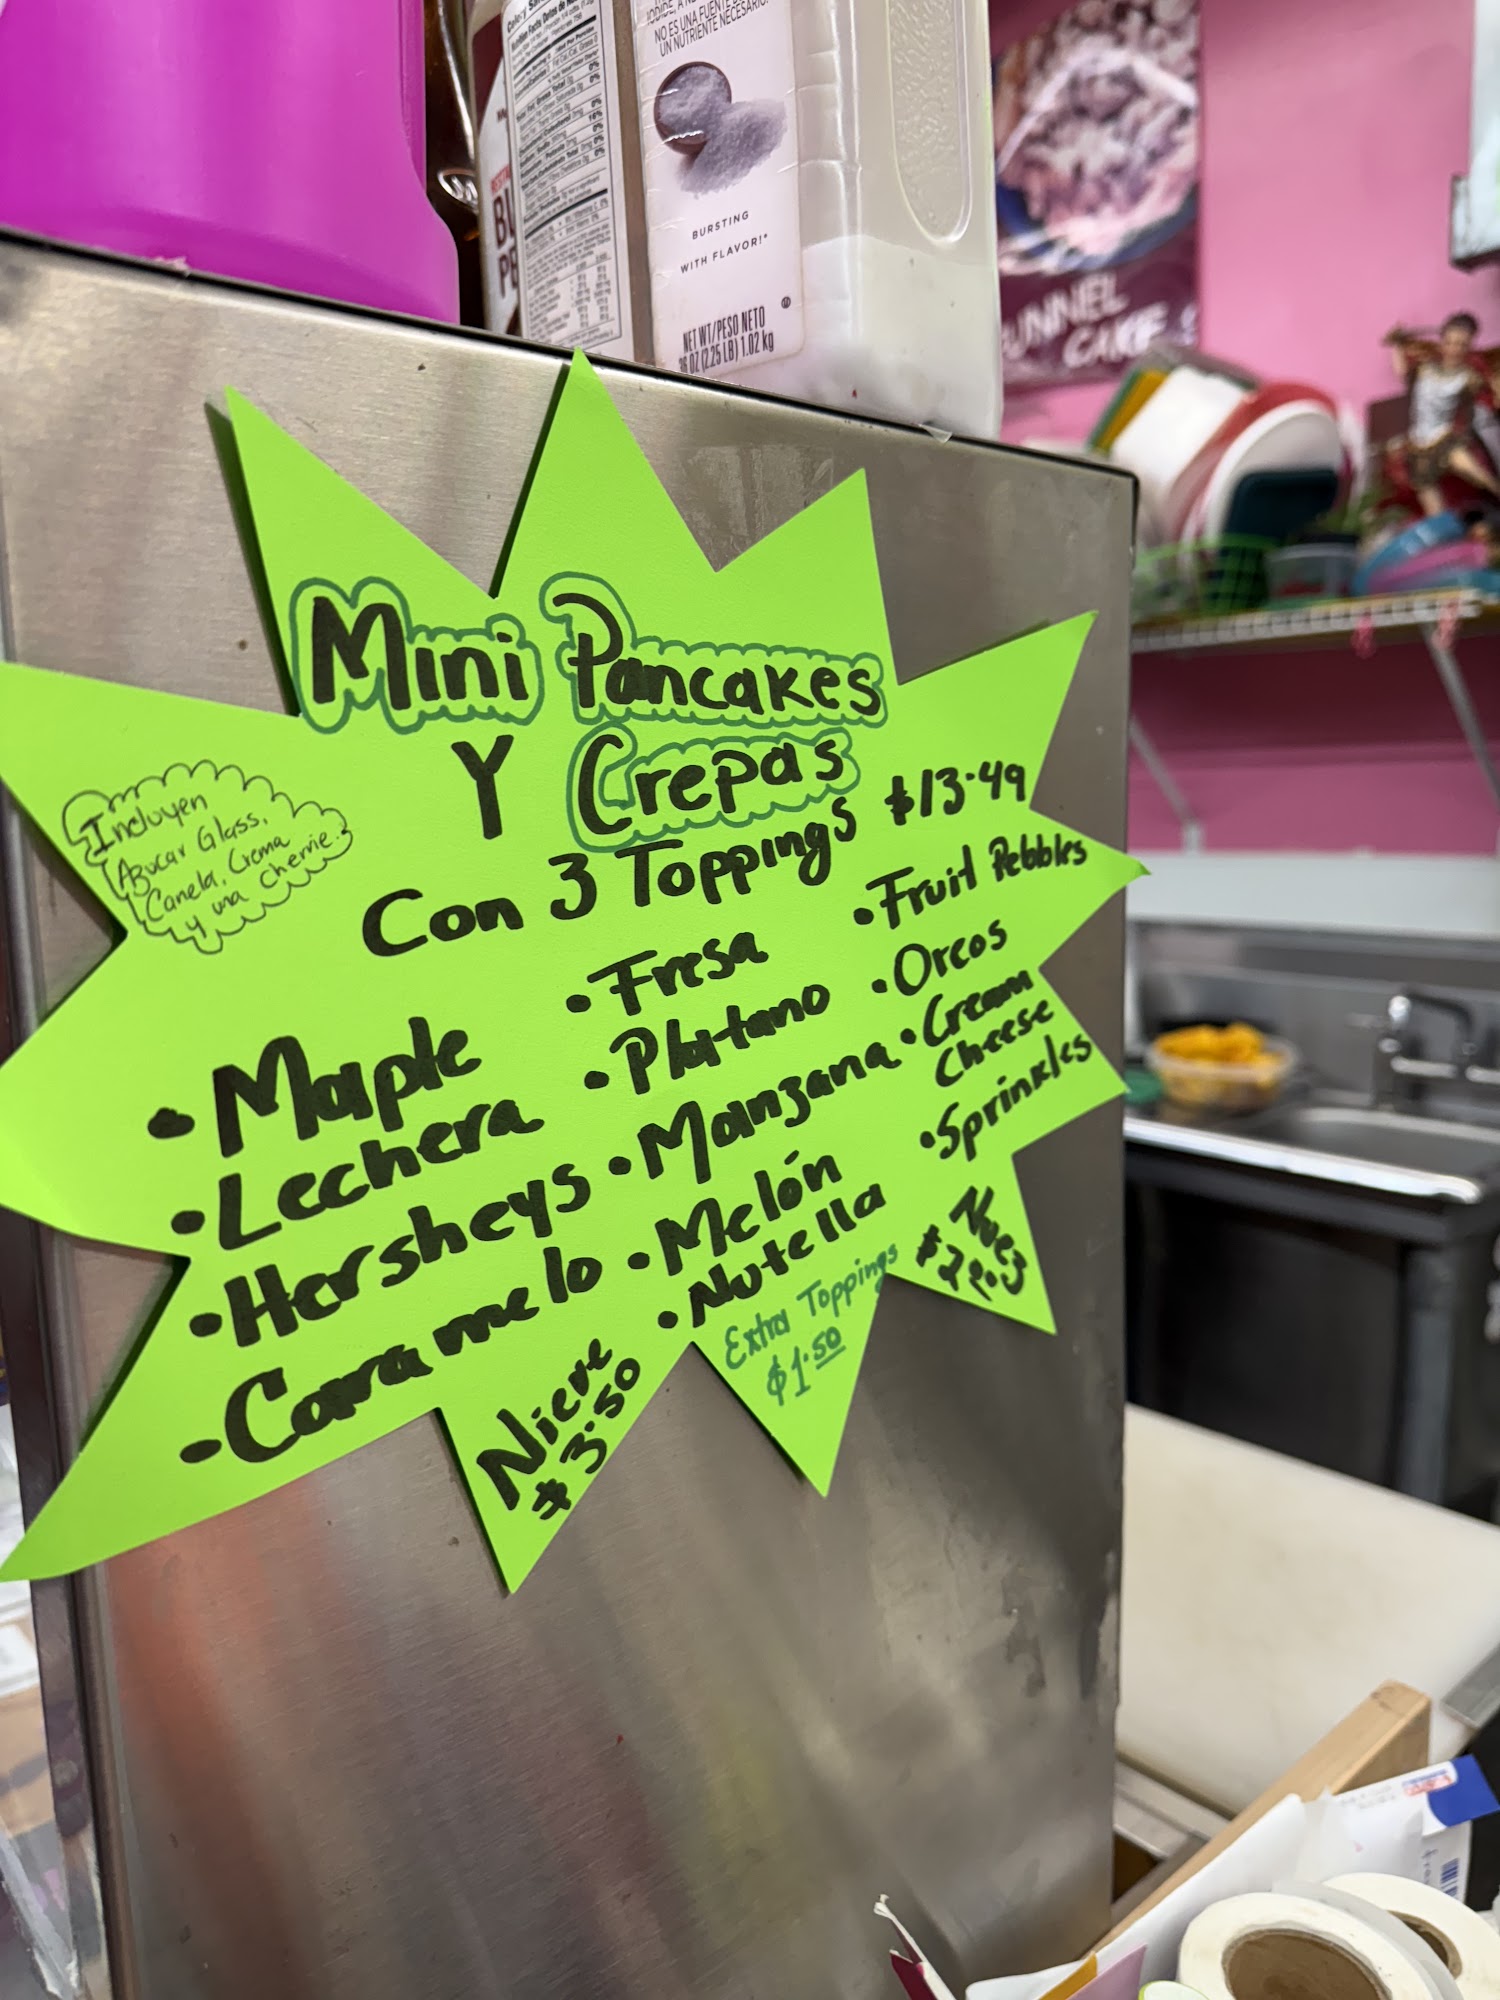 IODIDE, A
NO ES UNA FUENTE
UN NUTRIENTE NECESARIO.
BURSTING
WITH FLAVOR!*
NET WT/PESO NETO
36 OZ (2.25 LB) 1.02 kg
FUNNEL
CAKE
Mini Pancakes
Y Crepas
Con 3 Toppings $13.49
Incluyen
Azucar Glass,
Canela, Crema
y una Cherrie.
• Maple
• Lechera
• Hersheys
• Caramelo
• Fresa
• Platano
• Manzana
• Melón
• Nutella
• Fruit Pebbles
• Oreos
• Cream
Cheese
• Sprinkles
Nieve
$3.50
Extra Toppings
$1.50
Nuez